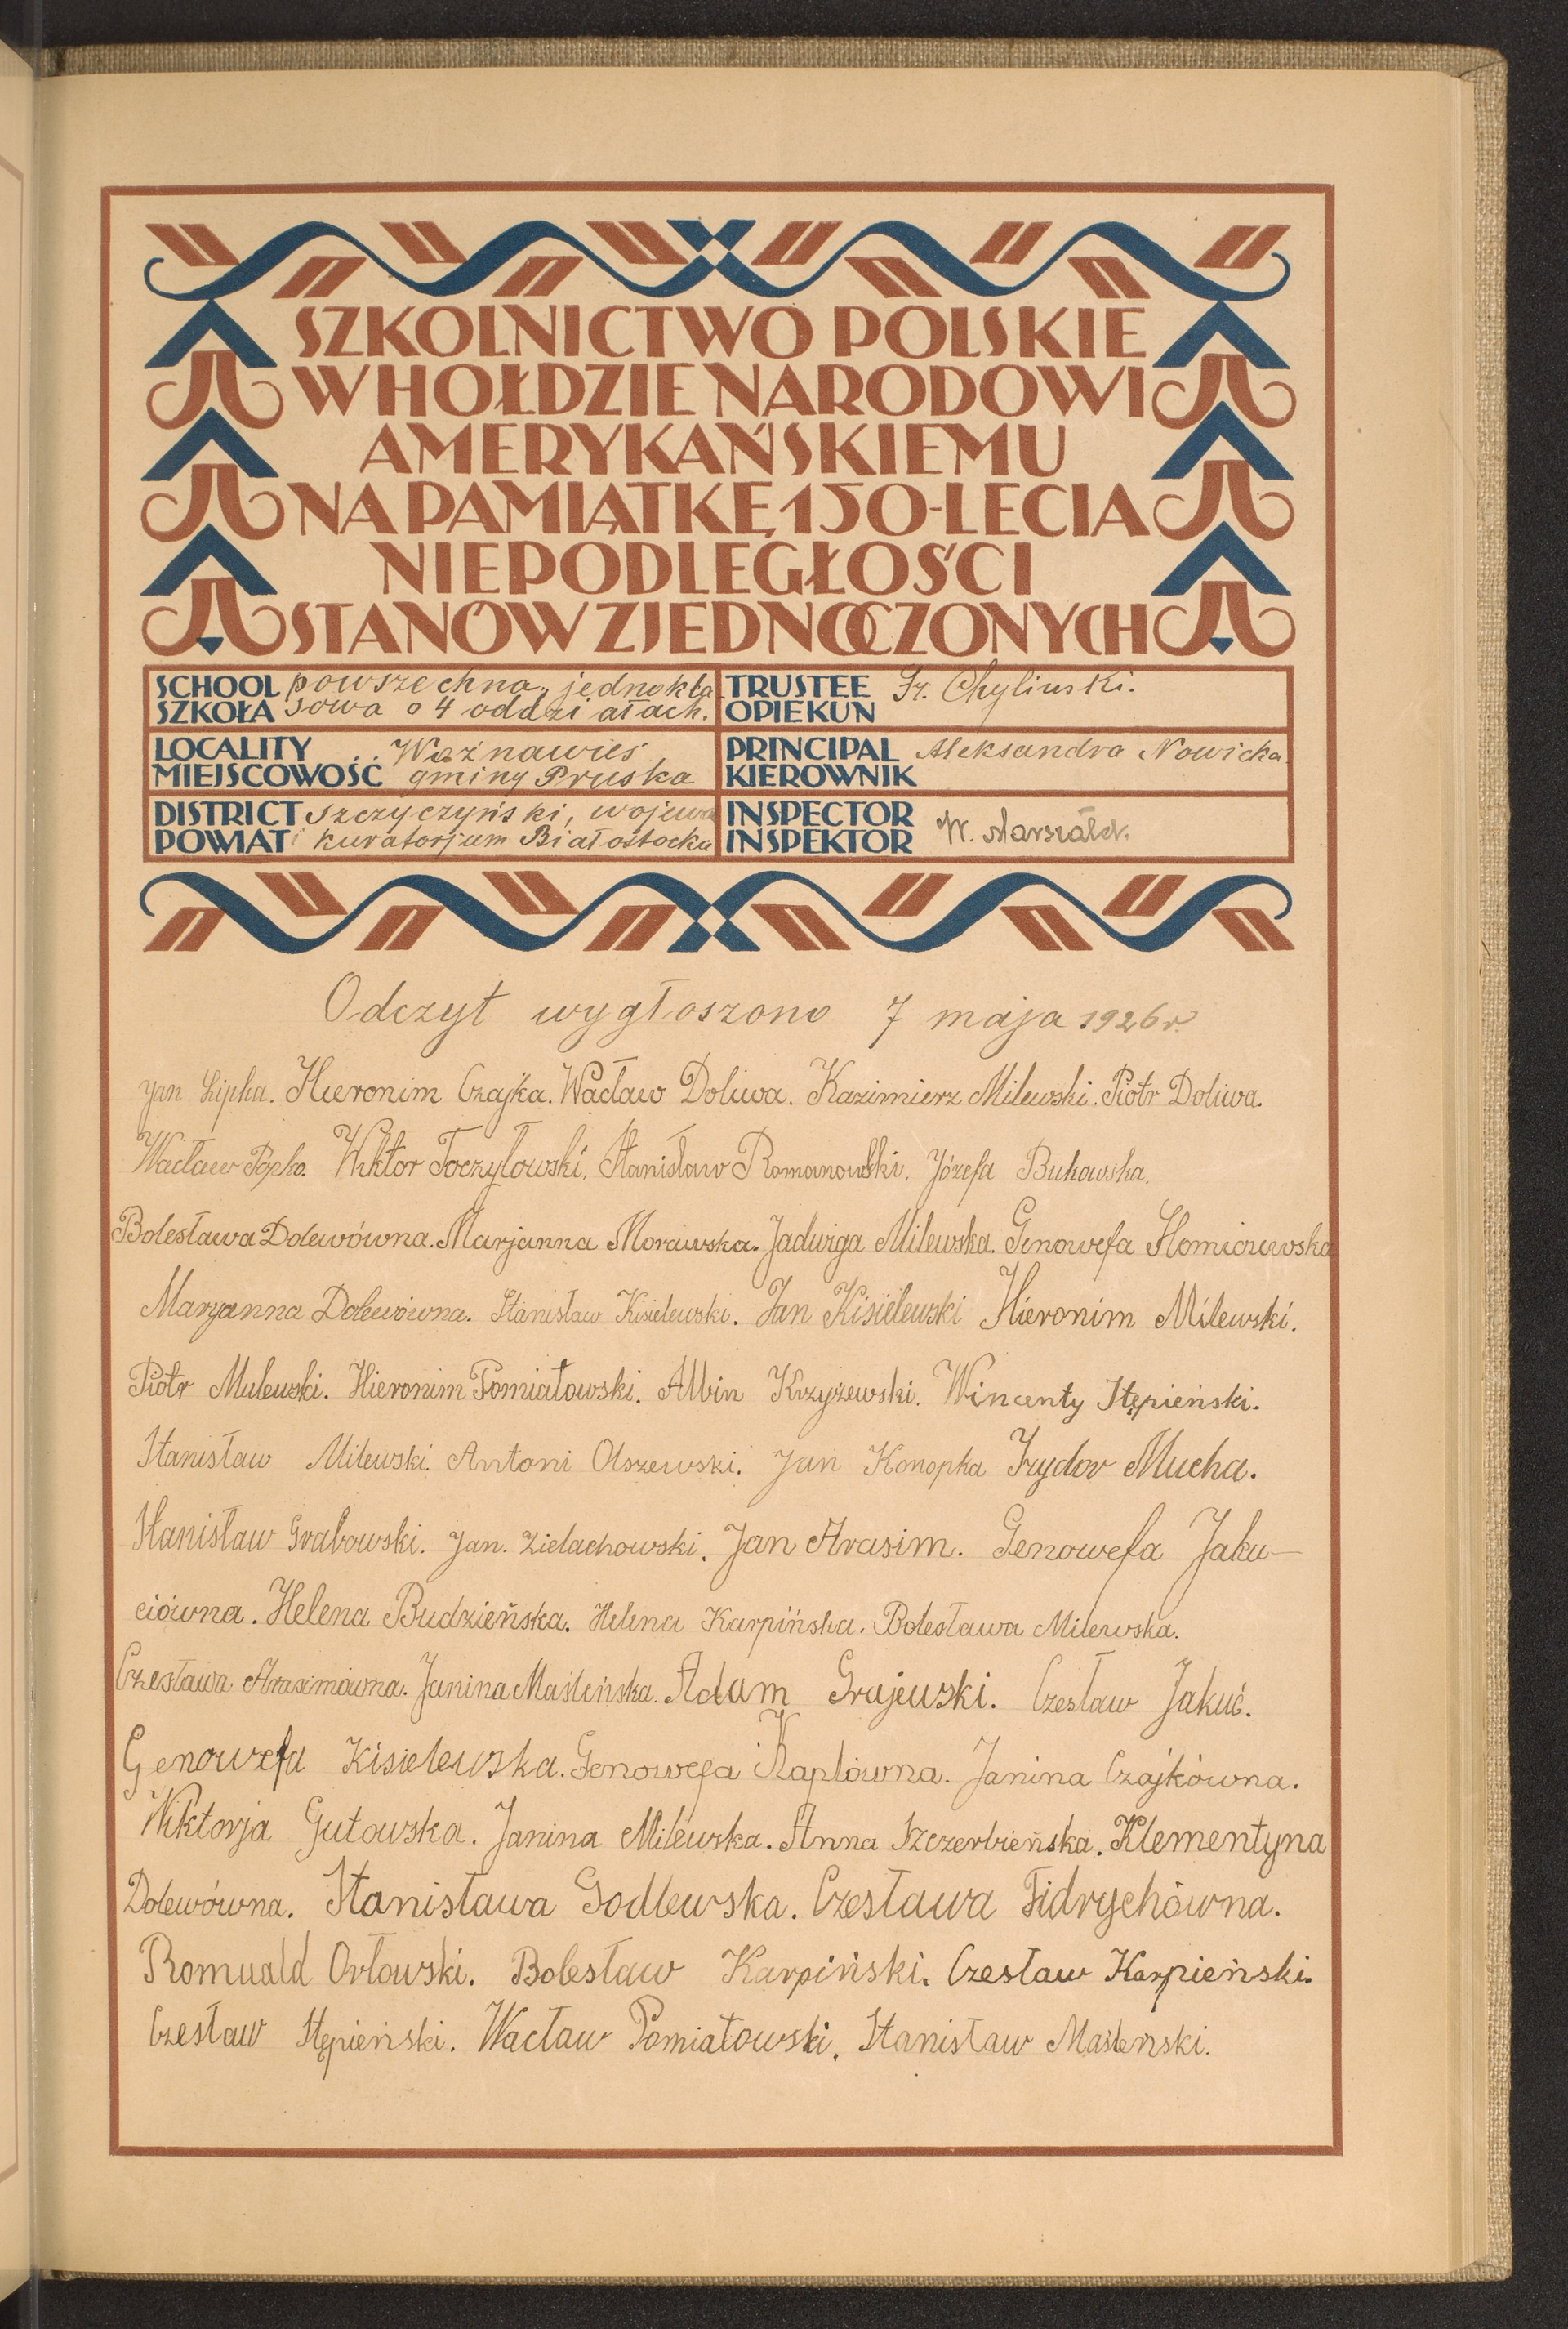 SZKOLNICTWO POLSKIE
W HOŁDZIE NARODOWI
AMERYKAŃSKIEMU
NA PAMIĄTKĘ 150-LECIA
NIEPODLEGŁOŚCI
STANÓW ZJEDNOCZONYCH
SCHOOL powszechna, jednokla
SZKOŁA sowa o 4 oddziałach.
TRUSTEE Fr. Chyliński.
OPIEKUN
LOCALITY Woźnawieś
MIEJSCOWOŚĆ gminy Pruska
PRINCIPAL Aleksandra Nowicka
KIEROWNIK
DISTRICT szczyczyński, wojewo
POWIAT i kuratorjum Białostocka
INSPECTOR
INSPEKTOR W. Marszałek
Odczyt wygłoszono 7 maja 1926 r.
Jan Lipka. Hieronim Czajka. Wacław Doliwa. Kazimierz Milewski. Piotr Doliwa.
Wacław Popko. Wiktor Toczyłowski. Stanisław Romanowski. Józefa Bukowska.
Bolesława Dolewówna. Marjanna Morawska. Jadwiga Milewska. Genowefa Słomiczewska
Maryanna Dolewówna. Stanisław Kisielewski. Jan Kisielewski Hieronim Milewski.
Piotr Mulewski. Hieronim Pomiatowski. Albin Krzyżewski. Wincenty Stępieński.
Stanisław Milewski. Antoni Olszewski. Jan Konopka Izydor Mucha.
Stanisław Grabowski. Jan. Zielachowski. Jan Arasim. Genowefa Jaku-
ciówna. Helena Budzieńska. Helena Karpińska. Bolesława Milewska.
Czesława Arasimówna. Janina Maśleńska. Adam Grajewski. Czesław Jakuć.
Genowefa Kisielewska. Genowefa Kaplówna. Janina Czajkówna.
Wiktorja Gutowska. Janina Milewska. Anna Szczerbieńska. Klementyna
Dolewówna. Stanisława Godlewska. Czesława Fidrychówna.
Romuald Orłowski. Bolesław Karpiński. Czesław Karpieński.
Czesław Stępieński. Wacław Pomiatowski. Stanisław Maśleński.